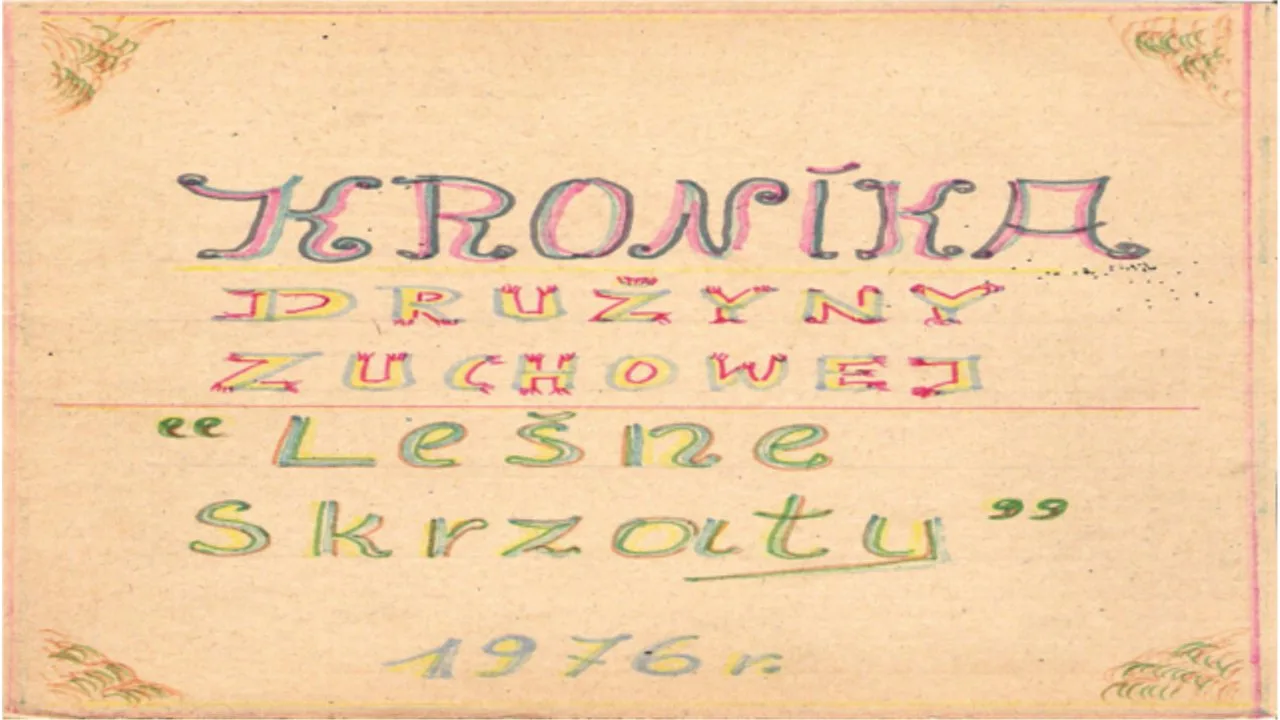 KRONIKA
DRUŻYNY
ZUCHOWEJ
“Leśne
Skrzaty”
1976r.